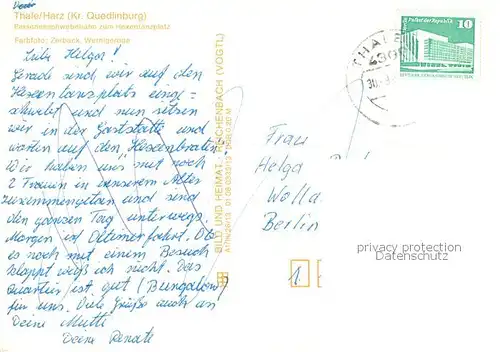 Thale/Harz (Kr. Quedlinburg)
Personenschwebebahn zum Hexentanzplatz
Farbfoto: Zerback, Wernigerode
Liebe Helga!
Gerade sind wir auf den
Hexentanzplatz einge-
schwebt und nun sitzen
wir in der Gaststätte und
warten auf den Hexenbraten!
Wir haben uns mit noch
2 Frauen in unserem Alter
zusammengetan und sind
den ganzen Tag unterwegs.
Morgen ist Oldtimerfahrt. Ob
es noch mit einem Besuch
klappt weiß ich nicht. Das
Quartier ist gut (Bungalow)
für uns. Viele Grüße auch an
Deine Mutti
Deine Renate
BILD UND HEIMAT REICHENBACH (VOGTL)
THALE
4308
30.
Palast der Republik
10
Frau
Helga
Wolla
Berlin
1
privacy protection
Datenschutz